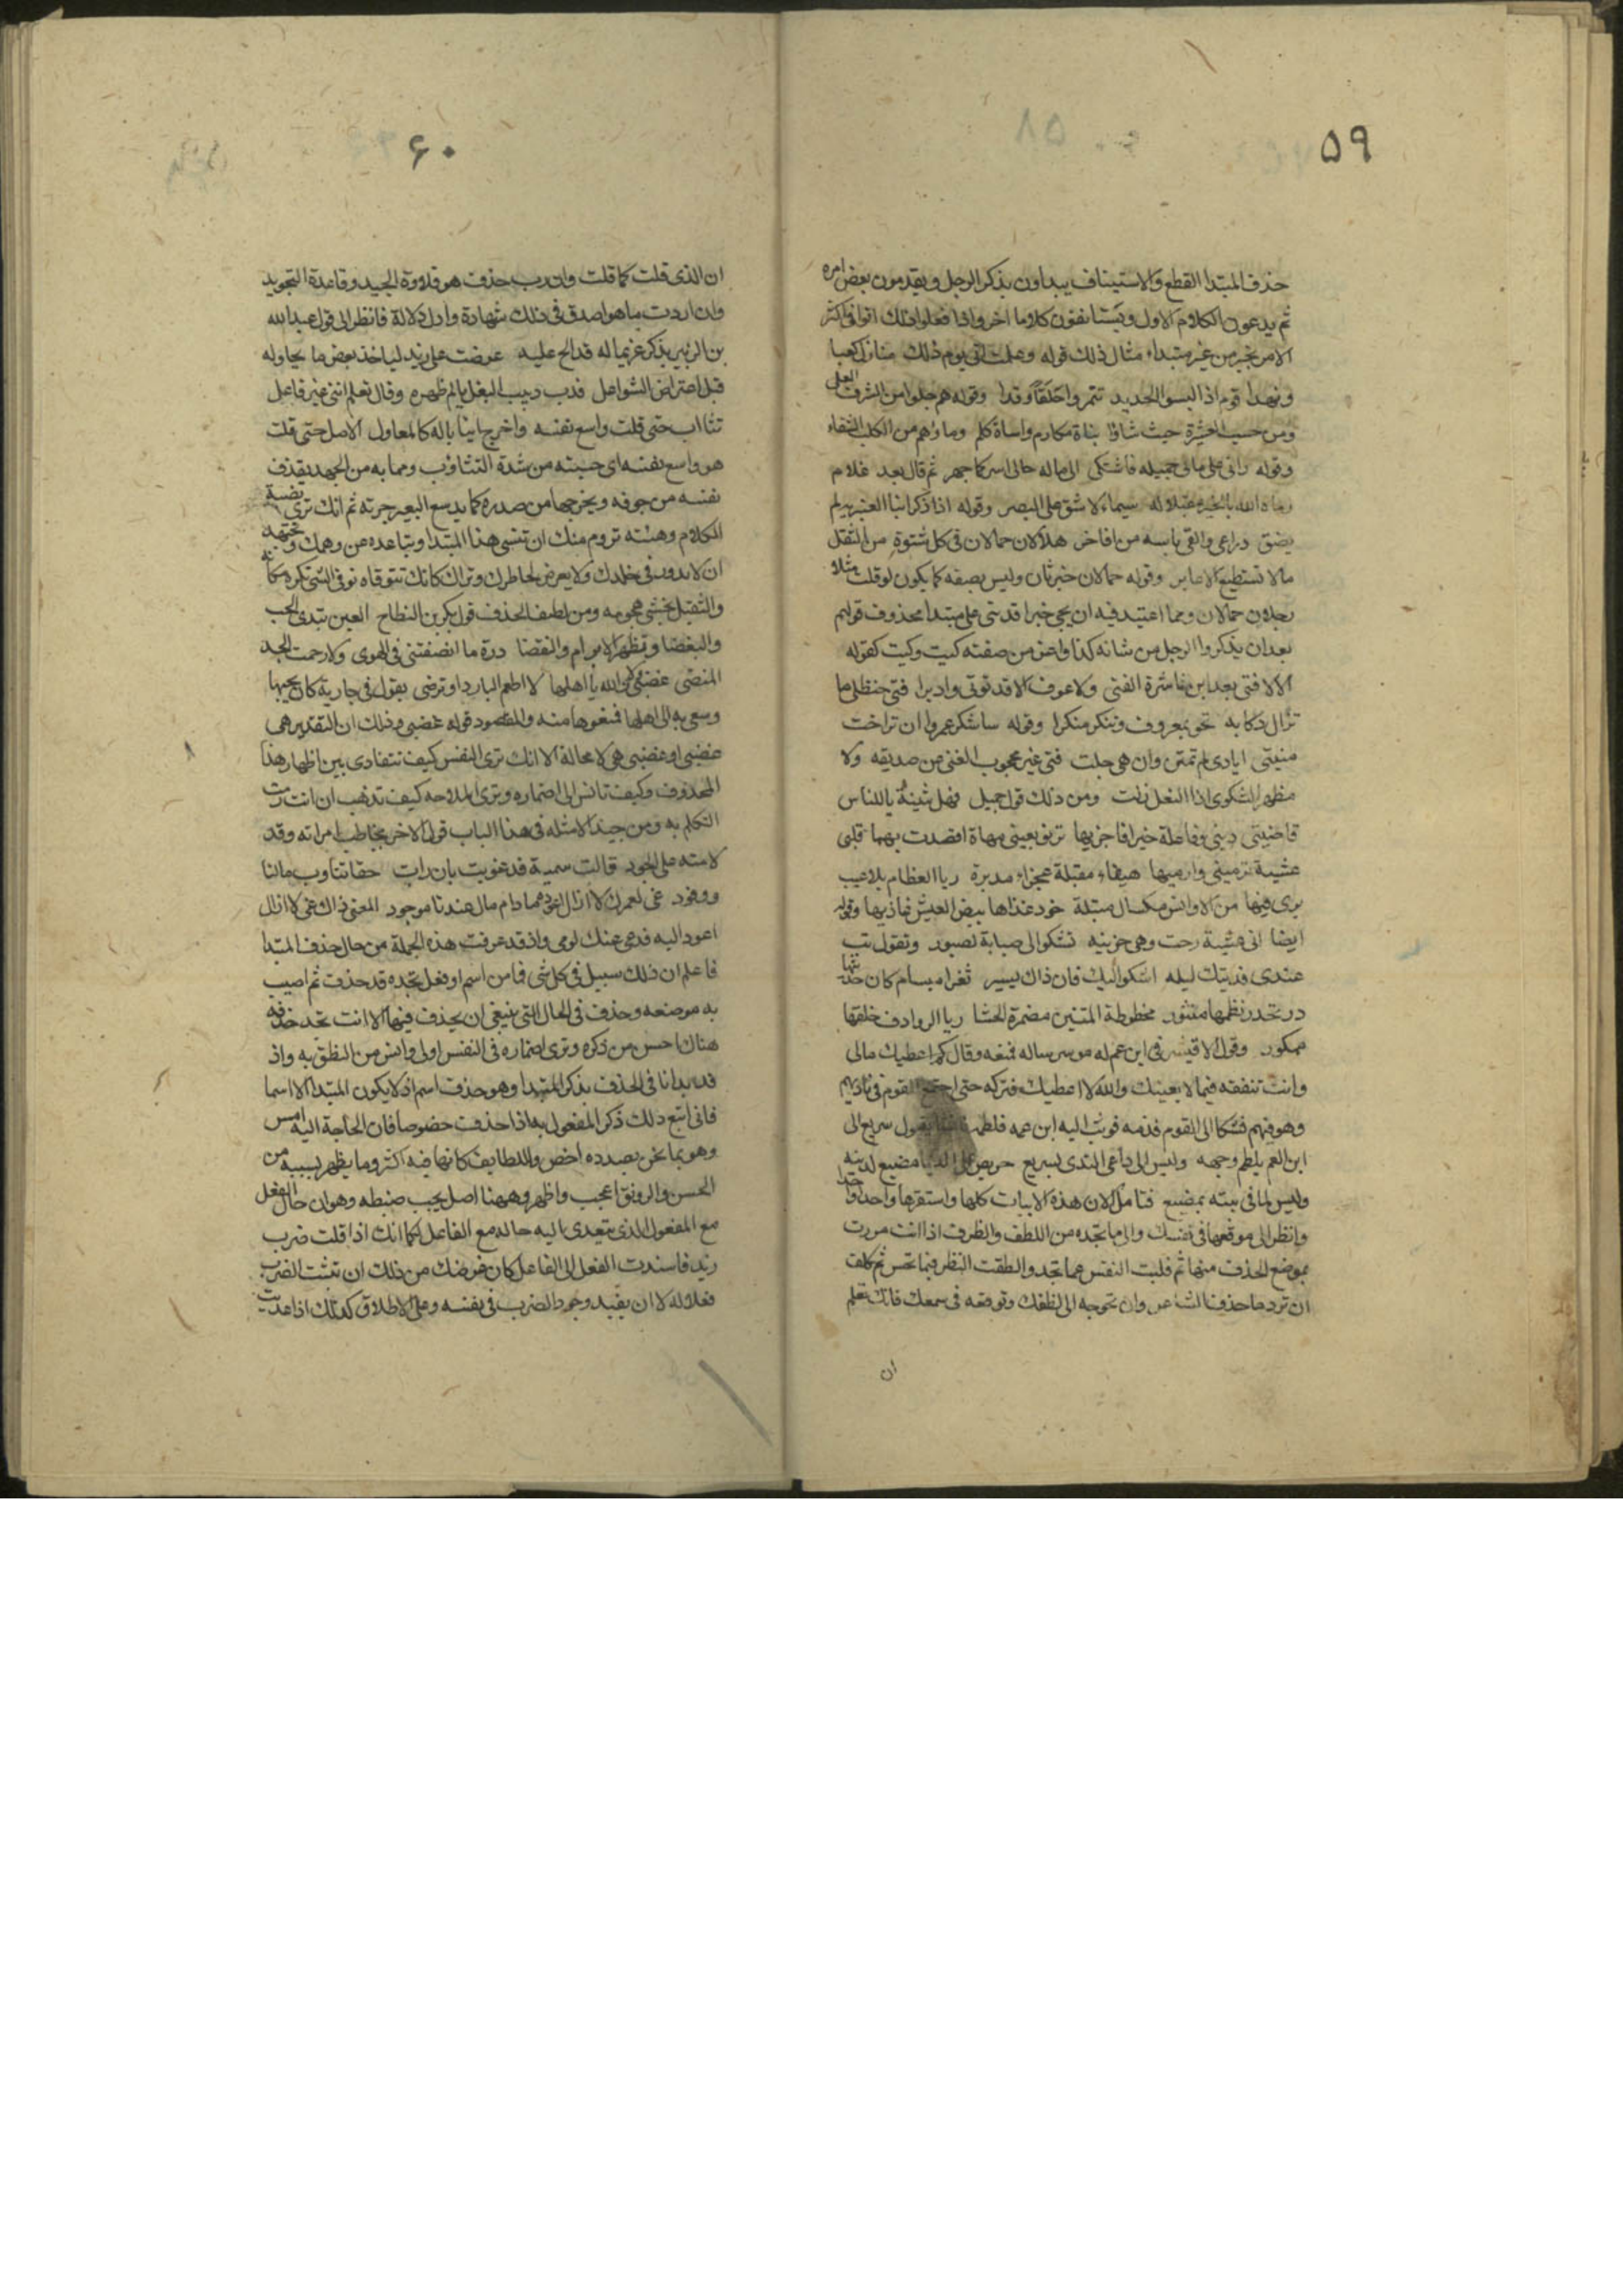 ٥٩
حذف المبتدا القطع والاستيناف يبداون بذكر الرجل ويقدمون بعض امره
ثم يدعون الكلام الاول ويستانفون كلاما اخر واذا فعلوا ذلك اتوا في اكثر
الامر بخبر من غير مبتداء مثال ذلك قوله وعلمت اني يوم ذلك منازل كعبا
ونهدا قوم اذا لبسوا الحديد تنمروا حلقا وقدا وقوله هم حلوا من الشرف المعلى
ومن حسب العشيرة حيث شاؤا بناة مكارم واساة كلم وماؤهم من الكلب الشفاء
وقوله راني على مابي عميله فاشتكى الى ماله حالي اسر كما جهر ثم قال بعد غلام
رماه الله بالخير مقبلا له سيماء لا شق على البصر وقوله اذا ذكر ابنا العنبريه لم
يضق ذراعي والقى باسه من افاخر هلالان حمالان في كل شتوة من الثقل
مالا تستطيع الاباعر وقوله حمالان خبر ثان وليس بصفه كما يكون لو قلت مثلا
رجلان حمالان ومما اعتيد فيه ان يجي خبرا قد بني على مبتدا محذوف قولهم
بعد ان يذكروا الرجل من شانه كذا واغر من صفته كيت وكيت كقوله
الا لا فتى بعد ابن ناشرة الفتى ولا عرف الا قد تولى وادبرا فتى حنظلي ما
تزال ركابه تجود بمعروف وتنكر منكرا وقوله ساشكر عمروا ان تراخت
منيتي ايادي لم تمنن وان هي جلت فتى غير محجوب الغنى من صديقه ولا
مظهر الشكوى اذا النعل زلت ومن ذلك قول جميل وهل بثينة ياللناس
قاضيتي ديني وفاعلة خيرا فاجزيها ترنو بعيني مهاة اقصدت بهما قلبي
عشية ترميني وارميها هيفاء مقبلة عجزاء مدبرة ريا العظام بلا عيب
يرى فيها من الاوانس مكسال مبتلة خود غذاها بيض العيش غاذيها وقوله
ايضا اني عشية رحت وهي حزينه تشكو الى صبابة لصبور وتقول بت
عندي فديتك ليله اشكو اليك فان ذاك يسير ثغرا مبسام كان حديثها
در تحدر نظمها منثور مخطوطة المتنين مضمرة الحشا ريا الروادف خلقها
ممكور وقول الاقيشر في ابن عم له موسر ساله فمنعه وقال كم اعطيك مالي
وانت تنفقه فيما لا يعنيك والله لا اعطيك فتركه حتى اجتمع القوم في ناديهم
وهو فيهم فشكا الى القوم فذمه فوثب اليه ابن عمه فلطمه يقول سريع الى
ابن العم يلطم وجهه وليس الى داعي الندى بسريع حريص على الدنيا مضيع لدينه
وليس لما في بيته بمضيع فتامل الان هذه الابيات كلها واستقرها واحدا واحدا
وانظر الى موقعها في نفسك والى ما تجده من اللطف والظرف اذا انت مررت
بموضع الحذف منها ثم قلبت النفس عما تجد والطفت النظر فيما تحس ثم تكلف
ان ترد ما حذف الشاعر وان تخرجه الى لفظك وتوقعه في سمعك فانك تعلم
ان
۶۰
ان الذي قلت كما قلت وان رب حذف هو قلادة الجيد وقاعدة التجويد
وان اردت ما هو اصدق في ذلك شهادة وادل دلالة فانظر الى قول عبد الله
بن الزبير يذكر غريما له قد الح عليه عرضت على زيد لياخذ بعض ما يحاوله
قبل اعتراض الشواغل فدب دبيب البغل يالم ظهره وقال تعلم انني غير فاعل
تثااب حتى قلت واسع نفسه واخرج انيابا له كالمعاول الاصل حتى قلت
هو واسع نفسه اي حسبته من شدة التثاوب ومما به من الجهد يقذف
نفسه من جوفه ويخرجها من صدره كما يدسع البعير جرته ثم انك ترى نصبة
الكلام وهيئته تروم منك ان تنسى هذا المبتدا وتباعده عن وهمك وتجتهد
ان لا يدور في خلدك ولا يعرض لخاطرك وتراك كانك تتوقاه توقي الشي تكره مكانه
والثقيل يخشى هجومه ومن لطيف الحذف قول بكر بن النطاح العين تبدي الحب
والبغضا وتظهر الابرام والنقضا درة ما انصفتني في الهوى ولا رحمت الجسد
المنضى غضبى ولا والله يا اهلها لا اطعم البارد او ترضى يقول في جارية كان يحبها
وسعى به الى اهلها فمنعوها منه والمقصود قوله غضبى وذلك ان التقدير هي
غضبى او غضبى هي لا محالة الا انك ترى النفس كيف تتفادى بين اظهار هذا
المحذوف وكيف تانس الى اضماره وترى الملاحه كيف تذهب ان انت رمت
التكلم به ومن جيد الامثله في هذا الباب قول الاخر يخاطب امراته وقد
لامته على الجود قالت سمية قد غويت بان رات حقا تناوب مالنا
ووفود غي لعمرك لا ازال اعوده ما دام مال عندنا موجود المعنى ذاك غي لا ازال
اعود اليه فدعي عنك لومي واذ قد عرفت هذه الجملة من حال حذف المبتدا
فاعلم ان ذلك سبيل في كل شي فما من اسم او فعل تجده قد حذف ثم اصيب
به موضعه وحذف في الحال التي ينبغي ان يحذف فيها الا انت تجد حذفه
هناك احسن من ذكره وترى اضماره في النفس اولى وانس من النطق به واذ
قد بدانا في الحذف بذكر المبتدا وهو حذف اسم اذ لا يكون المبتدا الا اسما
فاني اتبع ذلك ذكر المفعول به اذا حذف خصوصا فان الحاجة اليه امس
وهو بما نحن بصدده اخص واللطايف كانها فيه اكثر وما يظهر بسببه من
الحسن والرونق اعجب واظهر وههنا اصل يجب ضبطه وهو ان حال الفعل
مع المفعول الذي يتعدى اليه حاله مع الفاعل كما انك اذا قلت ضرب
زيد فاسندت الفعل الى الفاعل كان غرضك من ذلك ان تثبت الضرب
فعلا له لا ان يفيد وجود الضرب في نفسه وعلى الاطلاق كذلك اذا عديت